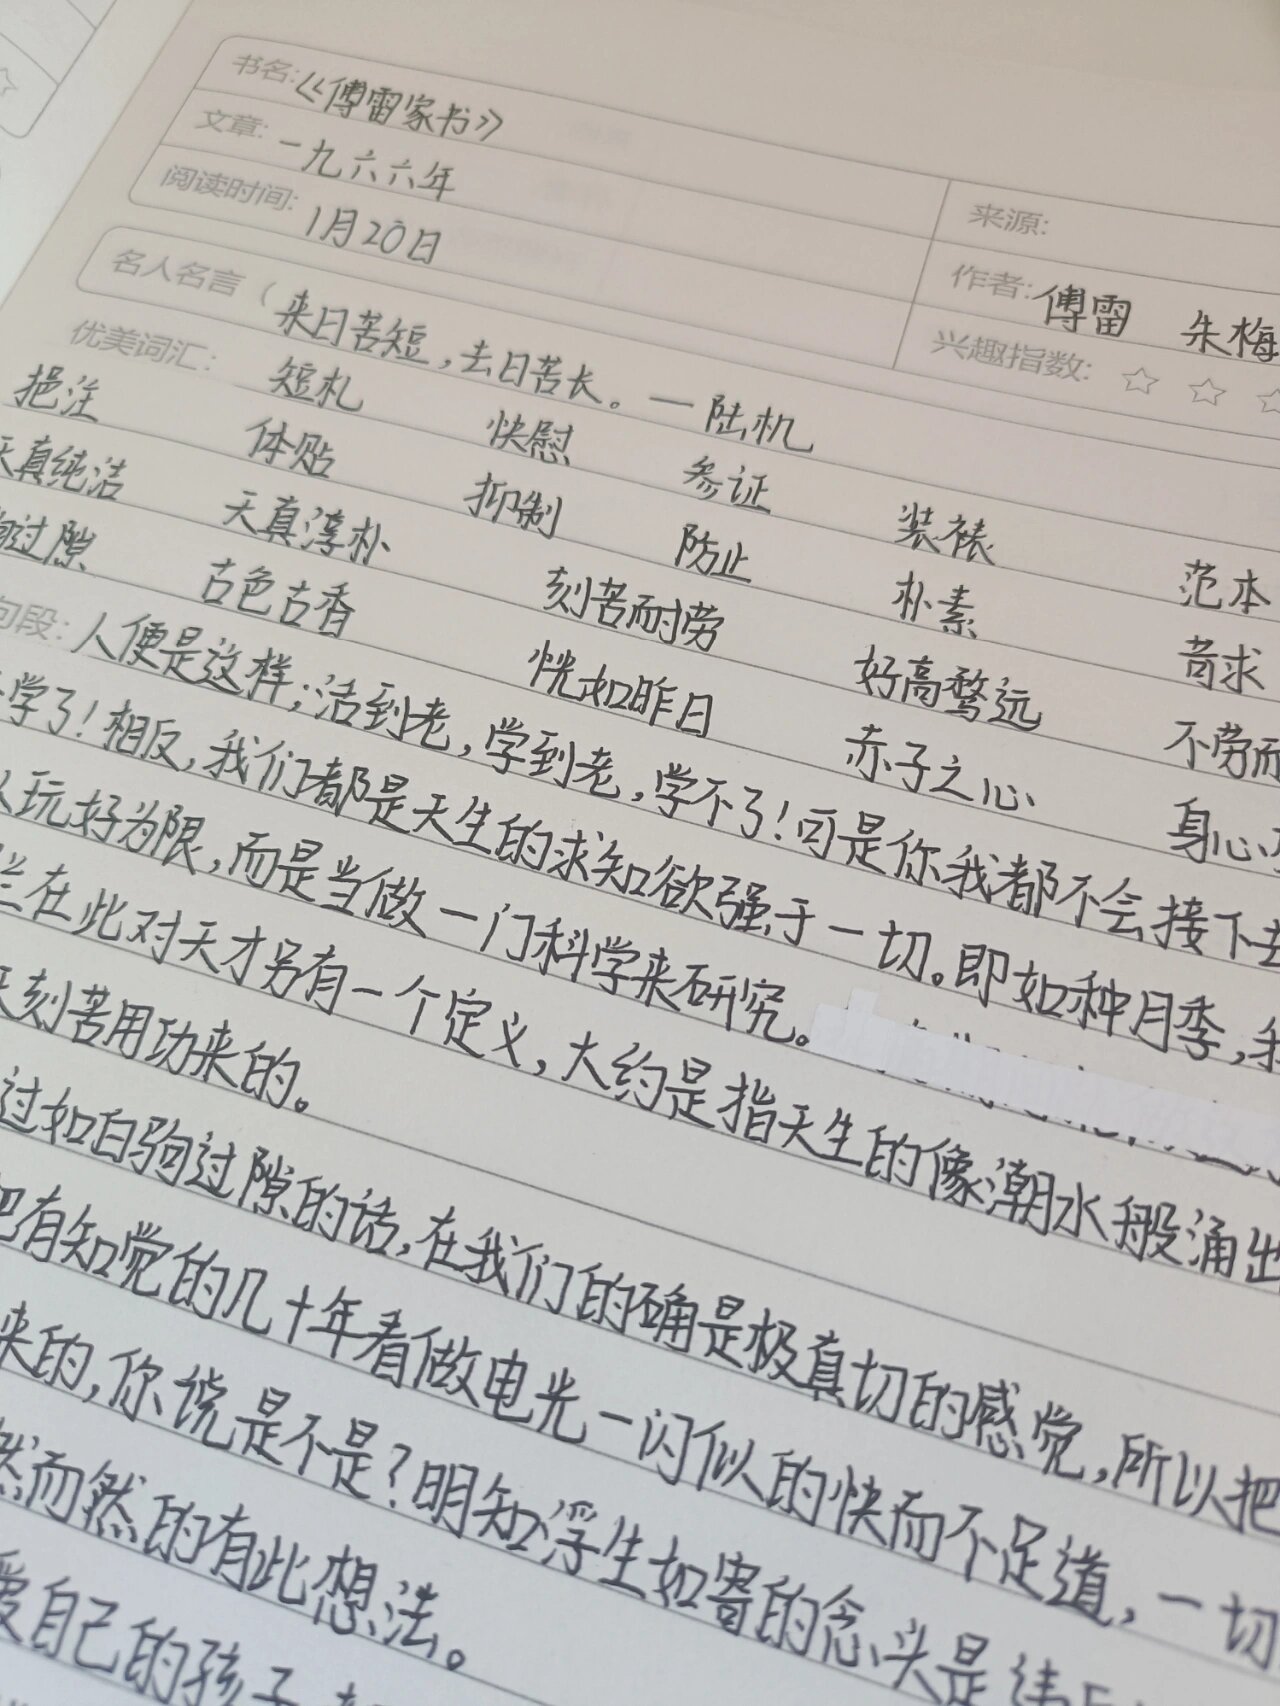 书名:《傅雷家书》
来源:
文章: 一九六六年
作者: 傅雷 朱梅
阅读时间: 1月20日
兴趣指数: ☆ ☆ ☆
名人名言( 来日苦短,去日苦长。—陆机
优美词汇: 短札 快慰 参证 装裱 范本
挹注 体贴 抑制 防止 朴素 苛求
天真纯洁 天真淳朴 刻苦耐劳 好高骛远 不劳而
过隙 古色古香 恍如昨日 赤子之心 身心
句段: 人便是这样;活到老,学到老,学不了!可是你我都不会接下去
学了!相反,我们都是天生的求知欲强于一切。即如种月季,我
玩好为限,而是当做一门科学来研究。
在此对天才另有一个定义,大约是指天生的像潮水般涌出
刻苦用功来的。
过如白驹过隙的话,在我们的确是极真切的感觉,所以把
把有知觉的几十年看做电光一闪似的快而不足道,一切
来的,你说是不是?明知浮生如寄的念头是违
然而然的有此想法。
爱自己的孩子